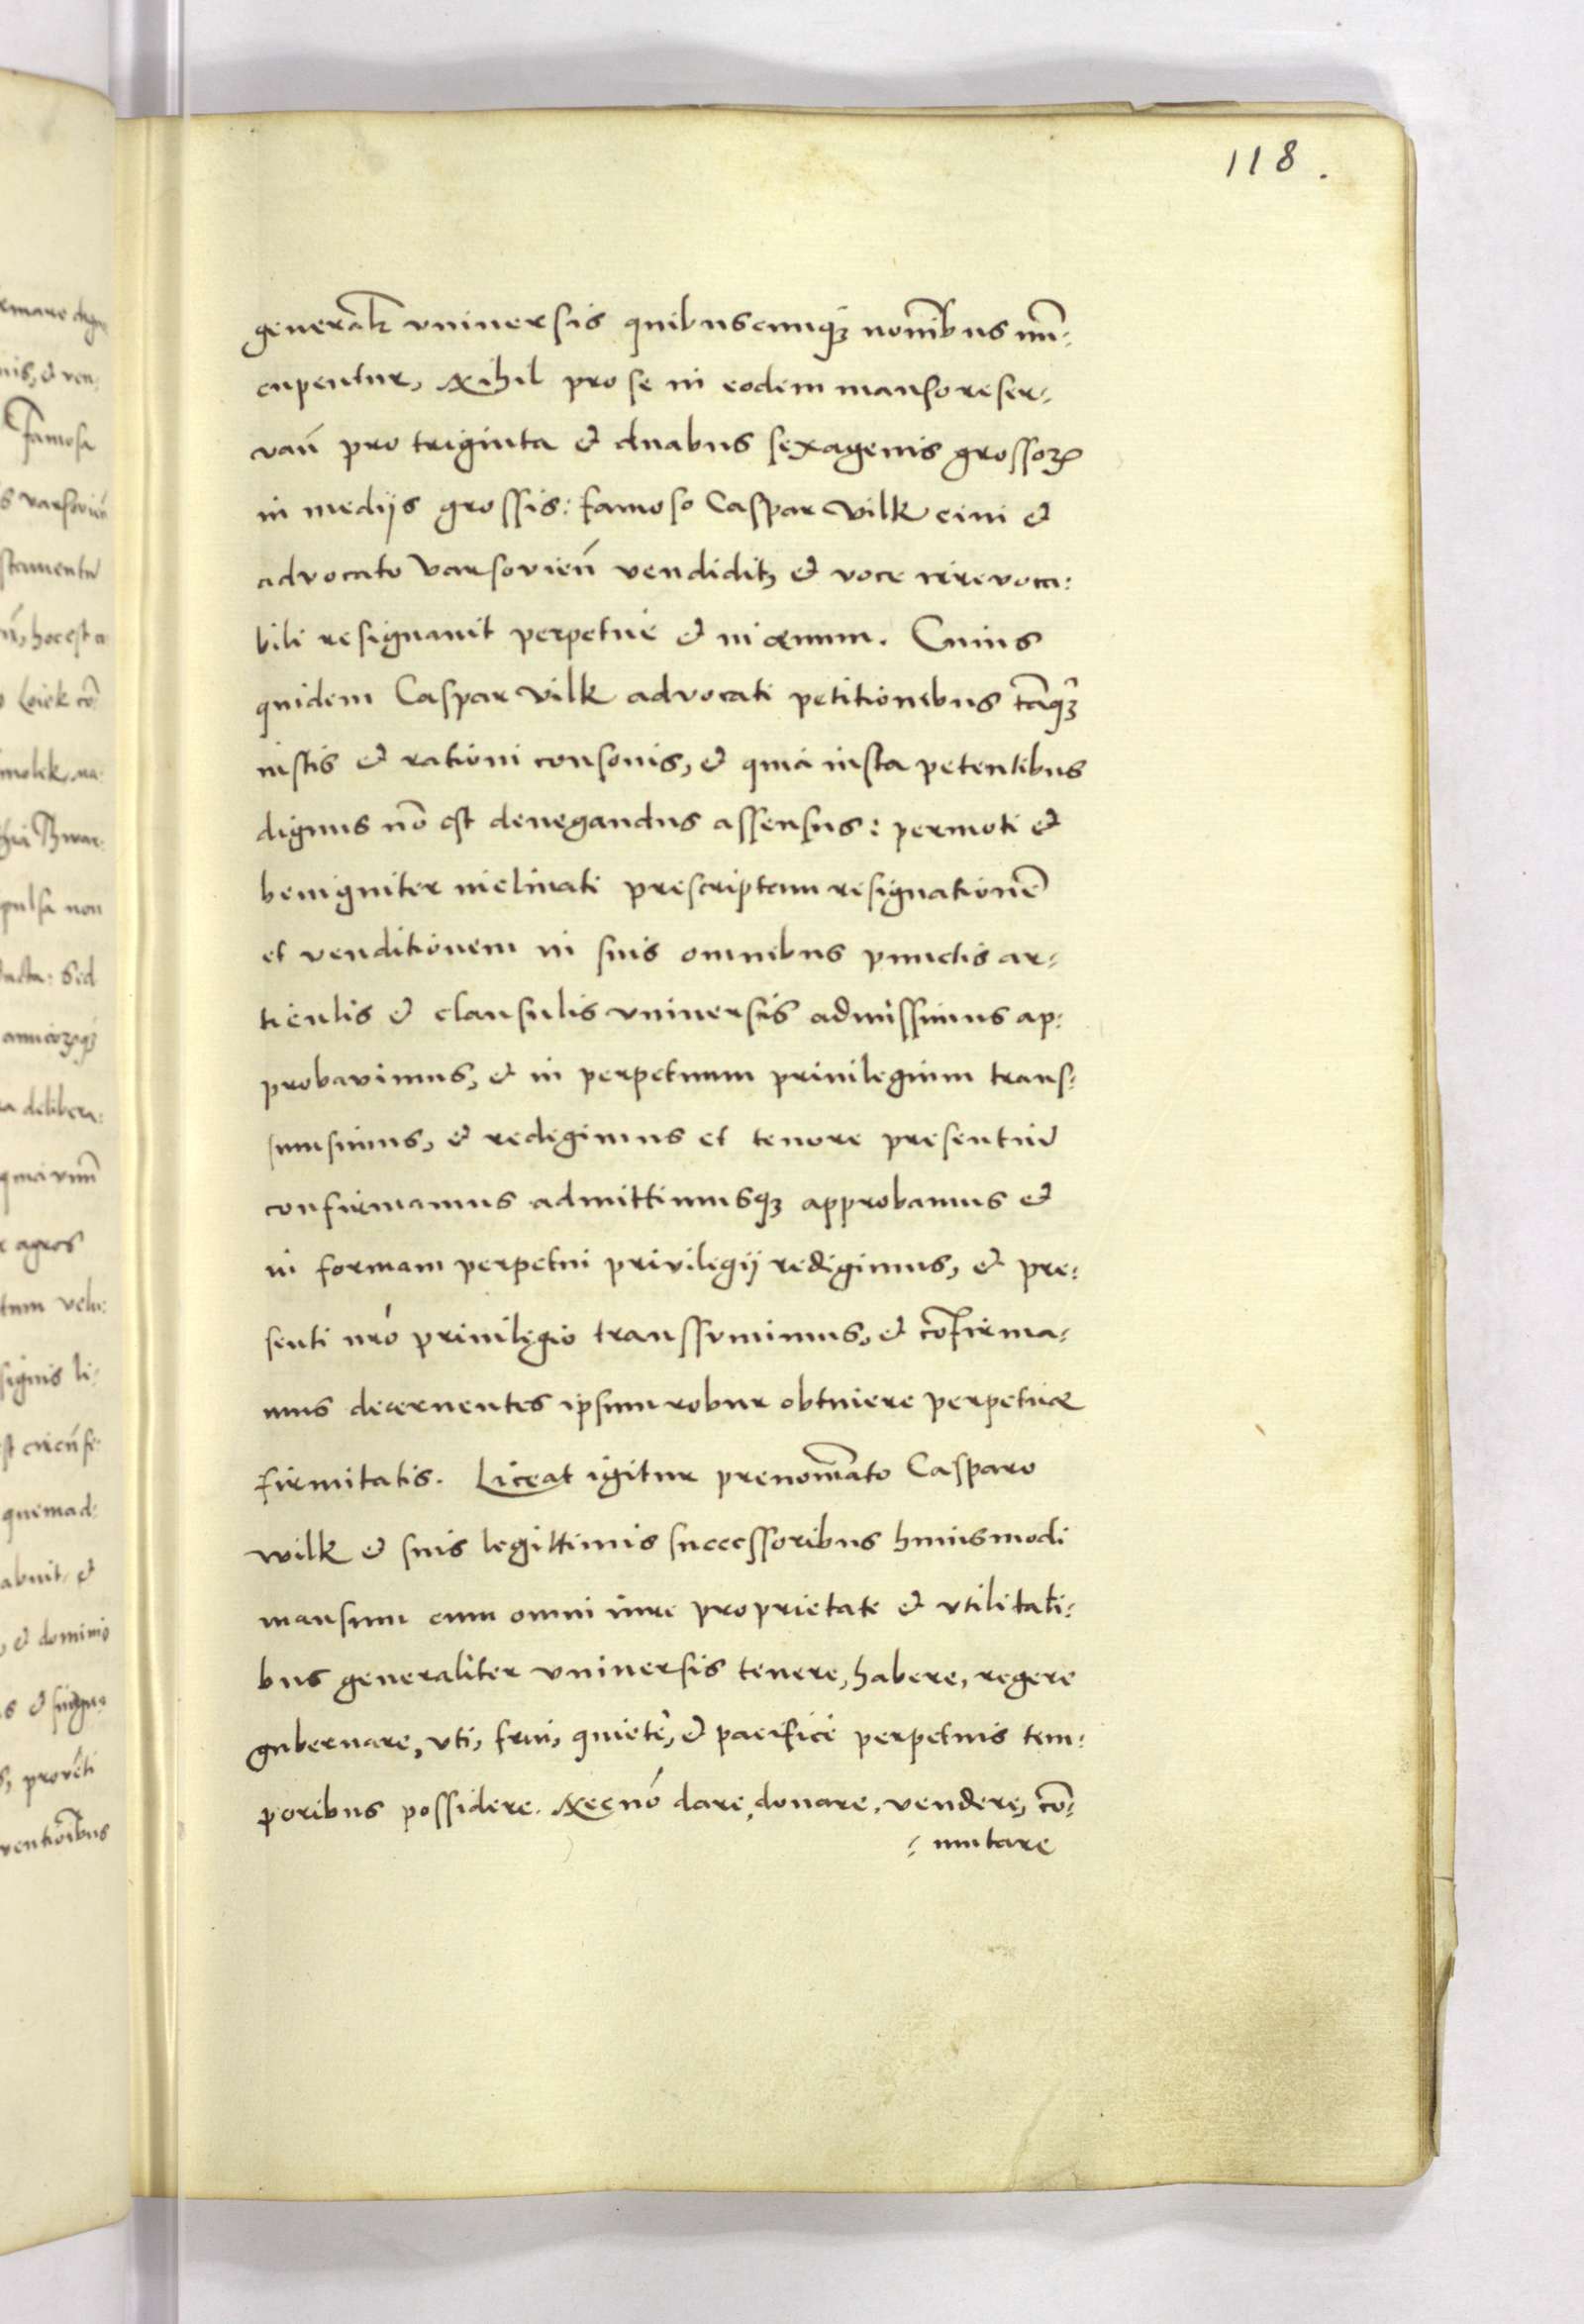 118.
generalr vniuersis quibuscumqꝫ noīmbus nū:
cupentur, Nihil pro se in eodem manso reser:
vañ pro triginta et duabus sexagenis grossoꝝ
in medijs grossis: famoso Caspar Vilk ciui et
advocato Varsovień vendidit, et voce irrevoca:
bili resignauit perpetue et in æuum. Cuius
quidem Caspar Vilk advocati petitionibus tāqꝫ
iustis et rationi consonis, et quia iusta petentibus
dignus nō est denegandus assensus: permoti et
benigniter inclinati prescriptam resignationē
et venditionem in suis omnibus punctis ar:
ticulis et clausulis vniuersis admissimus ap:
probavimus, et in perpetuum priuilegium trans:
sumsimus, et redegimus et tenore presentiū
confirmamus admittimusqꝫ approbamus et
in formam perpetui privilegij redigimus, et pre:
senti nrō priuilegio transsvmimus, et cōfirma:
mus decernentes ipsum robur obtinere perpetuæ
firmitatis. Liceat igitur prenomīato Casparo
wilk et suis legittimis successoribus huiusmodi
mansum cum omni iure proprietate et vtilitati:
bus generaliter vniuersis tenere, habere, regere
gubernare, vti, frui, quietè, et pacificè perpetuis tem:
poribus possidere. Necnō dare, donare, vendere, cō:
:mutare
famosa
hoc est a
Loiek cō
pulsa non
Sed
delibera:
agros
tum velu:
signis li:
quemad:
abuit, et
et dominio
ventioībus